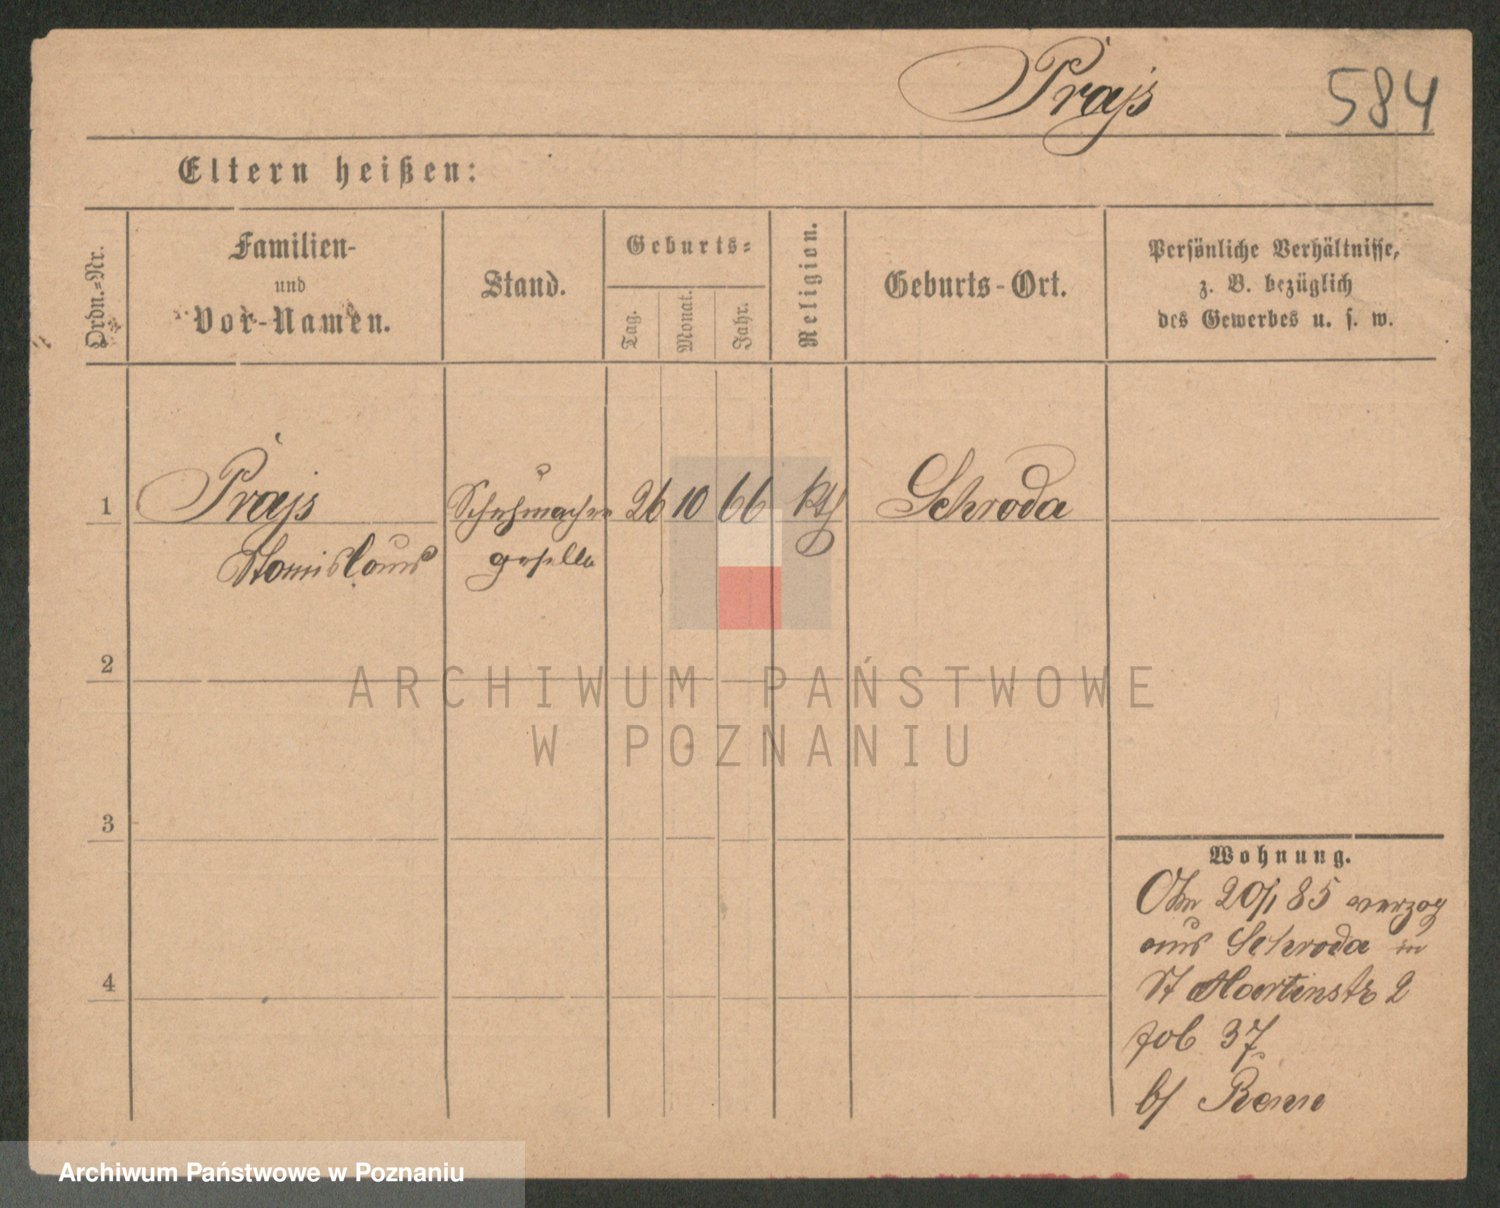 Prajs
584
Eltern heißen:
Ordn.-Nr.
Familien-
und
Vor-Namen.
Stand.
Geburts-
Tag.
Monat.
Jahr.
Religion.
Geburts-Ort.
Persönliche Verhältnisse,
z. B. bezüglich
des Gewerbes u. s. w.
1
Prajs
Schuhmacher
26
10
66
kth
Schroda
Stanislaus
geselle
2
ARCHIWUM PAŃSTWOWE
W POZNANIU
3
Wohnung.
20/1 85 verzog
aus Schroda in
St Martinstr 2
37
b/
4
Archiwum Państwowe w Poznaniu